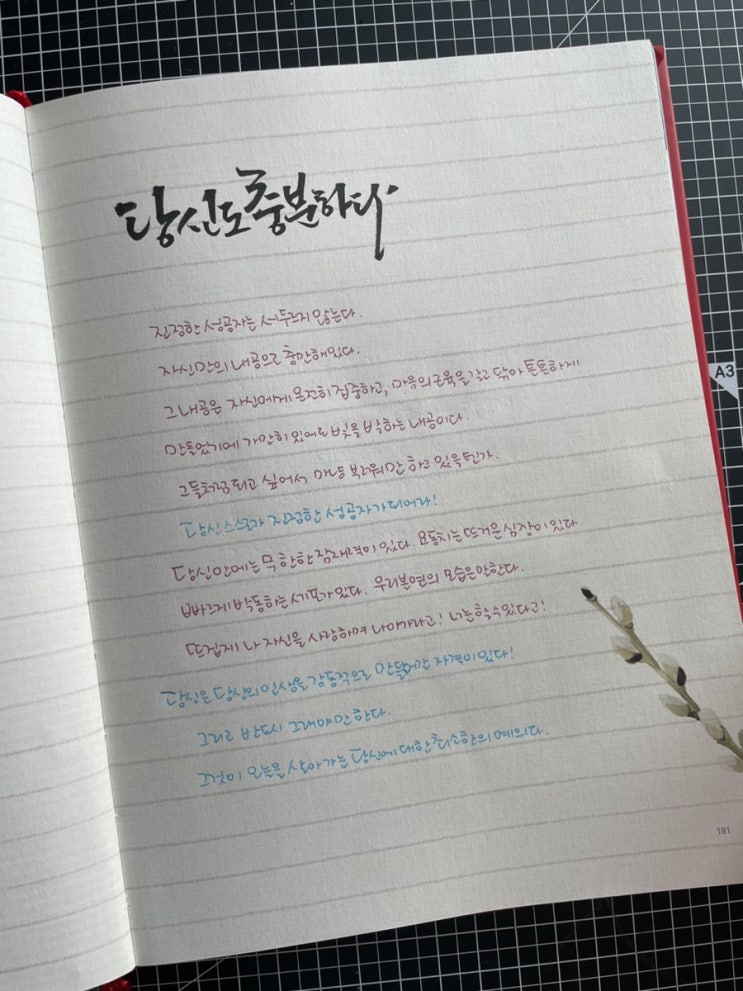 당신도 충분하다
진정한 성공자는 서두르지 않는다.
자신만의 내공으로 충만해있다.
그 내공은 자신에게 온전히 집중하고, 마음의 근육을 갈고 닦아 튼튼하게
만들었기에 가만히 있어도 빛을 발하는 내공이다.
그들처럼 되고 싶어서 마냥 부러워만 하고 있을텐가.
당신 스스로가 진정한 성공자가 되어라!
당신 안에는 무한한 잠재력이 있다. 요동치는 뜨거운 심장이 있다.
빠르게 박동하는 세포가 있다. 우리 본연의 모습은 말한다.
뜨겁게 나 자신을 사랑하며 나아가라고! 너는 할 수 있다고!
당신은 당신의 인생을 감동적으로 만들어갈 자격이 있다!
그리고 반드시 그래야만 한다.
그것이 오늘을 살아가는 당신에 대한 최소한의 예의다.
A3
181